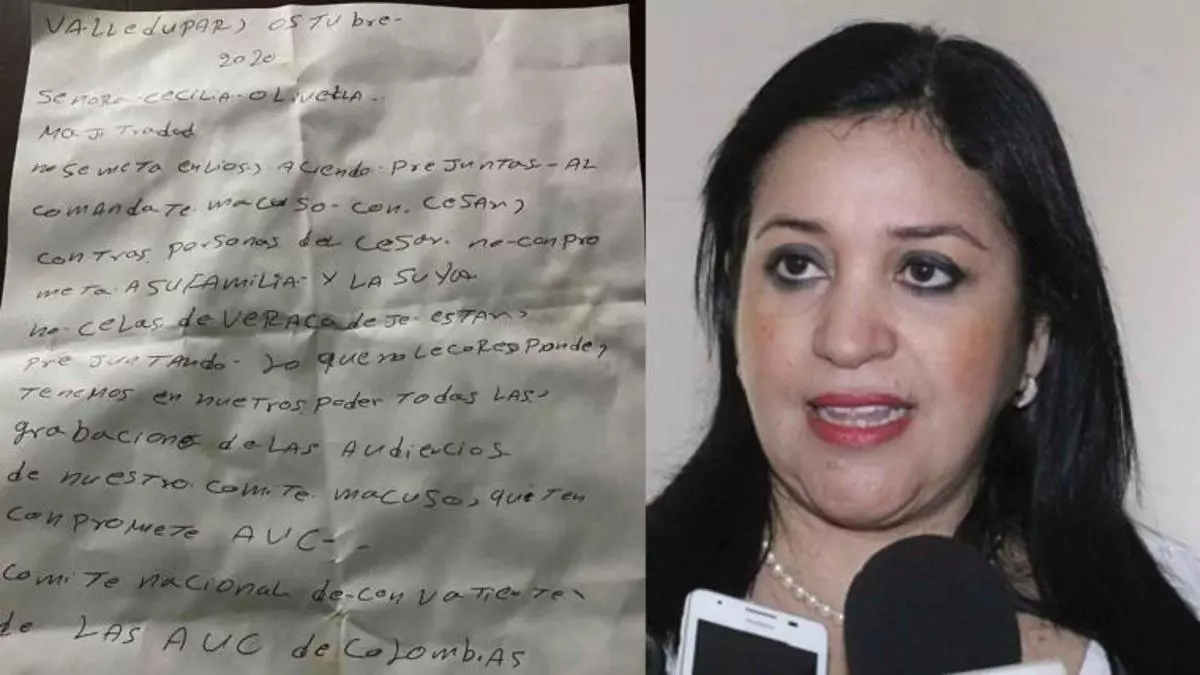 VALLeduPAR, OSTubre-
2020
SeñORA-CeCILIA-OLIVeLLA..
MaJiTRadad
no Se meTA enLios, ACiendo-PreJuntas-AL
ComAndATe macuso-con. CeSAR,
ConTRAS PORSonAS del CeSar. no-conpro
meTA-ASUFAMILIA-Y LA SUYA
no-CeLAS. de VERACA deJe-eSTAR,
PreJunTAndo- Lo que no LeCoResPonde,
Tenemos en nueTros PodeR Todas LAS,
grabacione de LAS AudieCioS
de nuesTro. Comite. macuso, que Ten
ConPRomeTe AUC--
ComiTe nacional de-conVaTienTe,
de LAS AUC de CoLomb.AS
HUAWEI